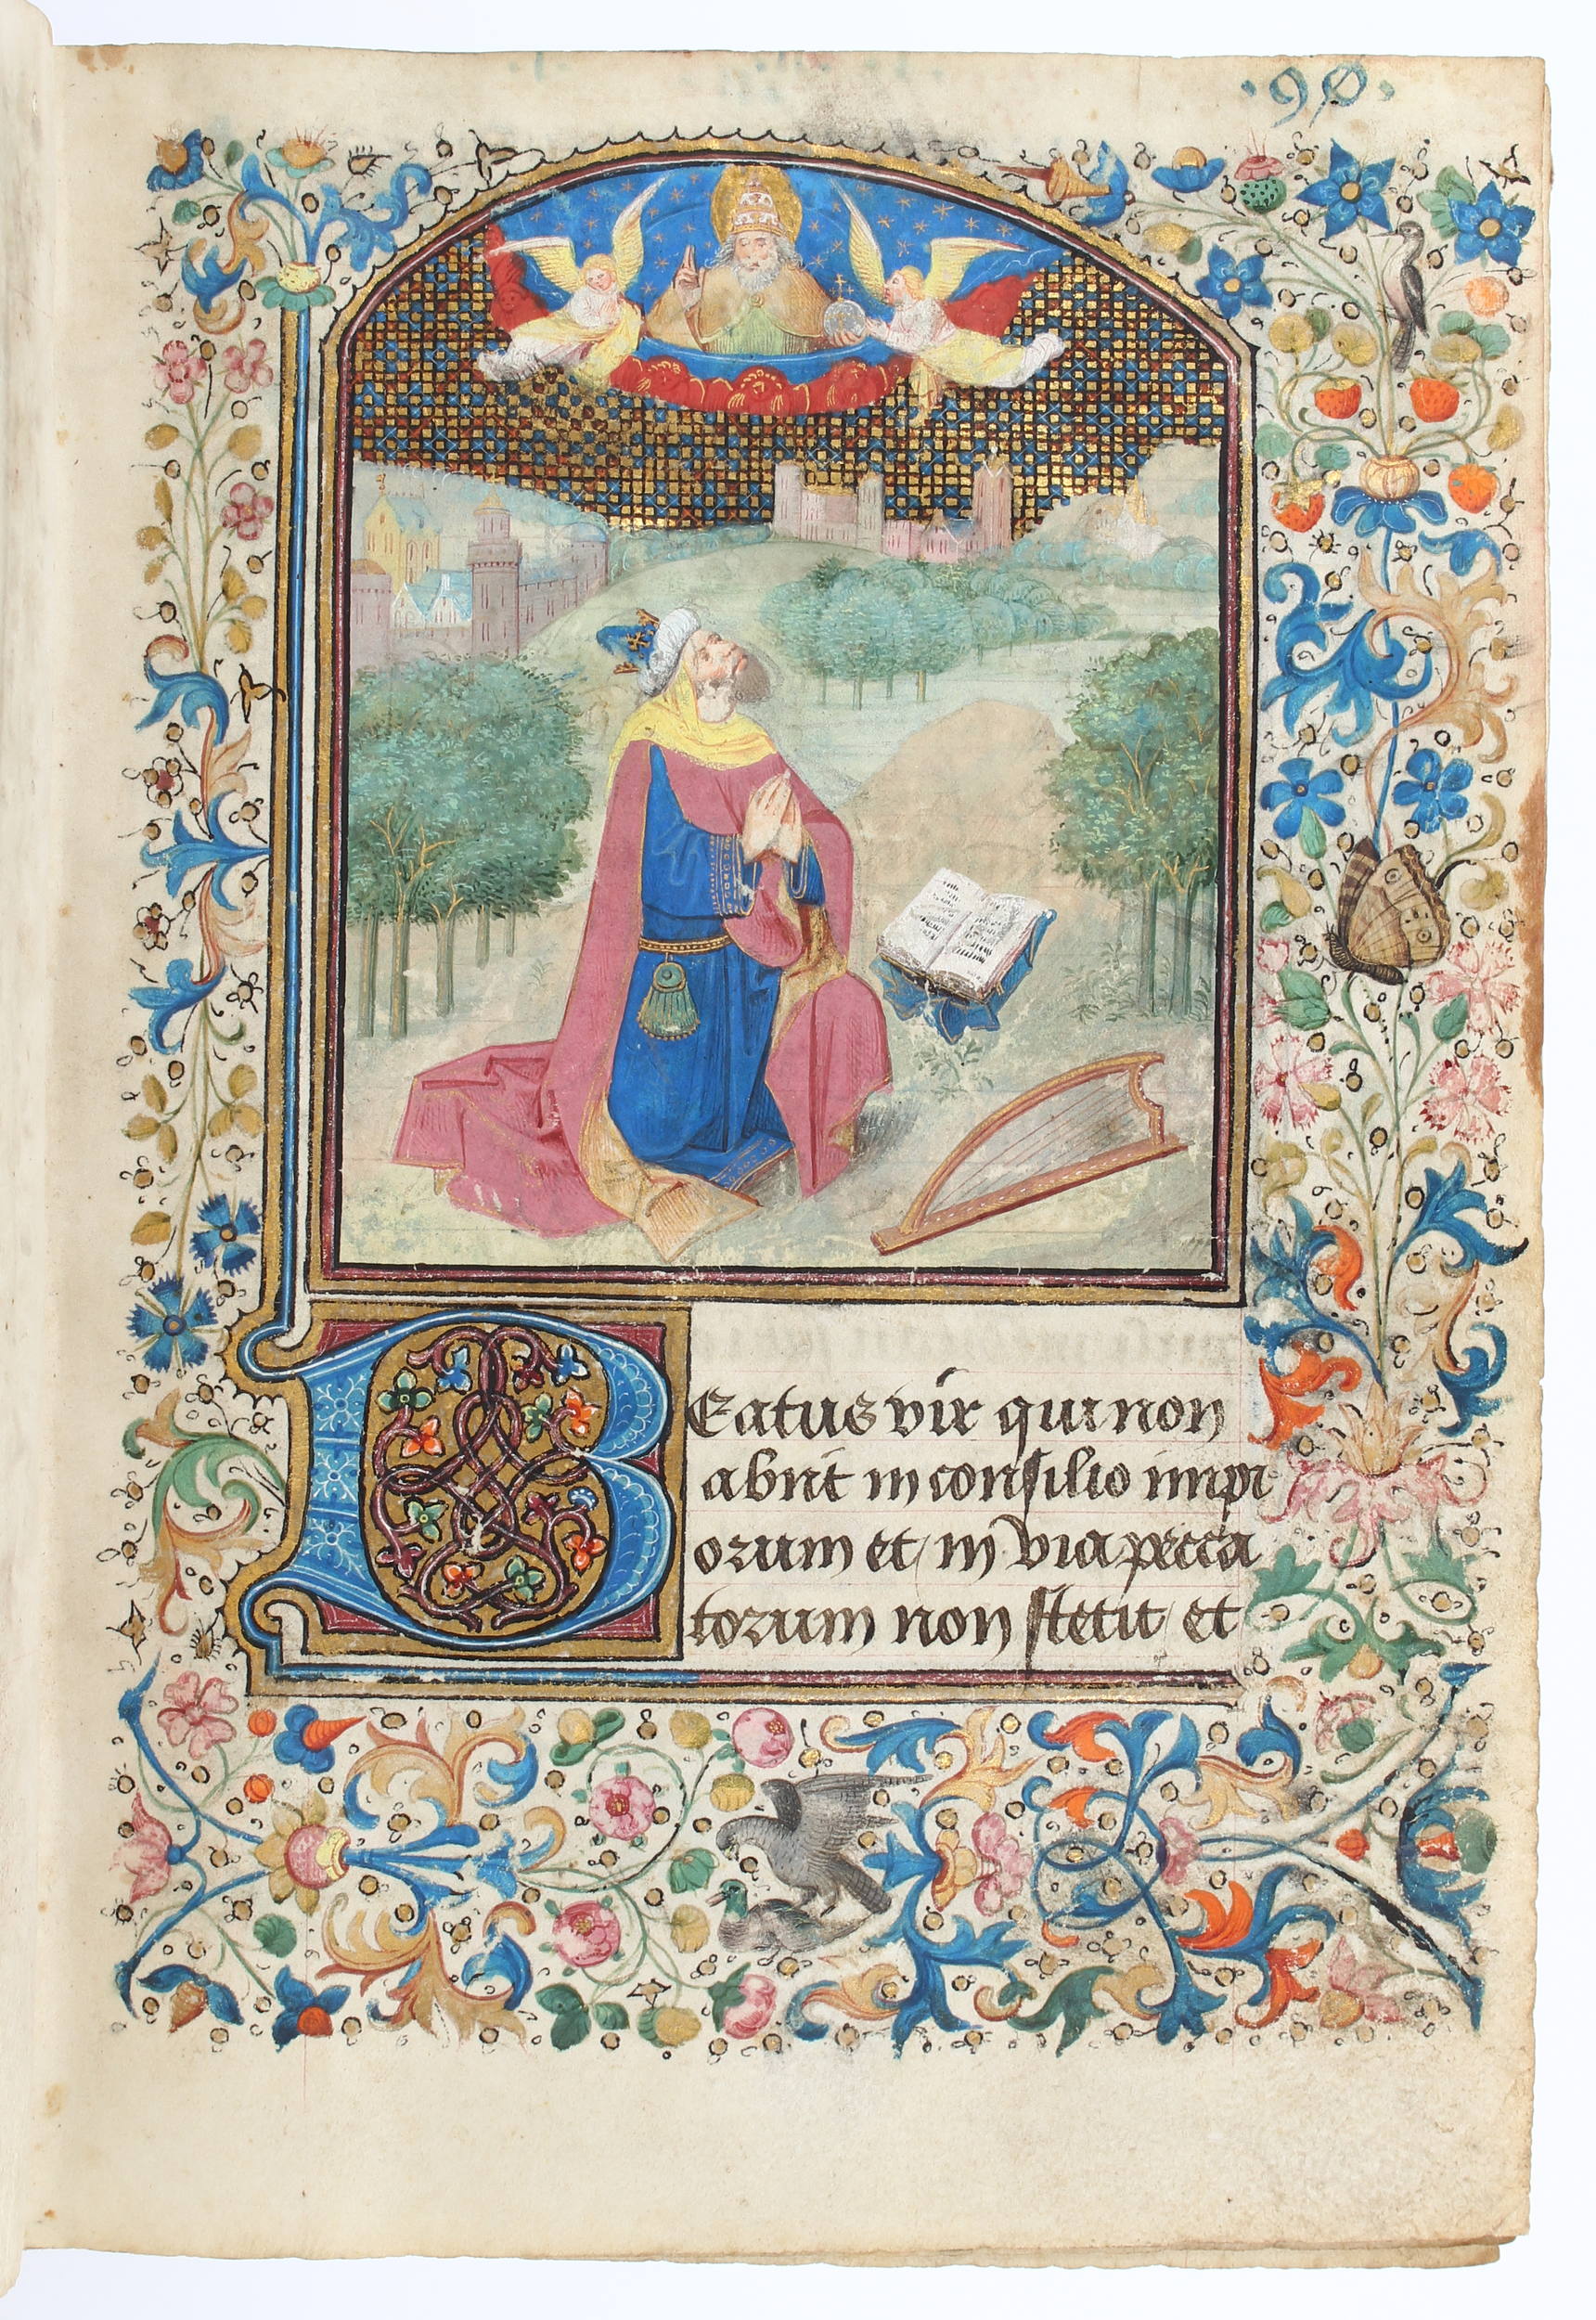 ·90·
Beatus vir qui non
abiit in consilio impi
orum et in via pecca
torum non stetit et